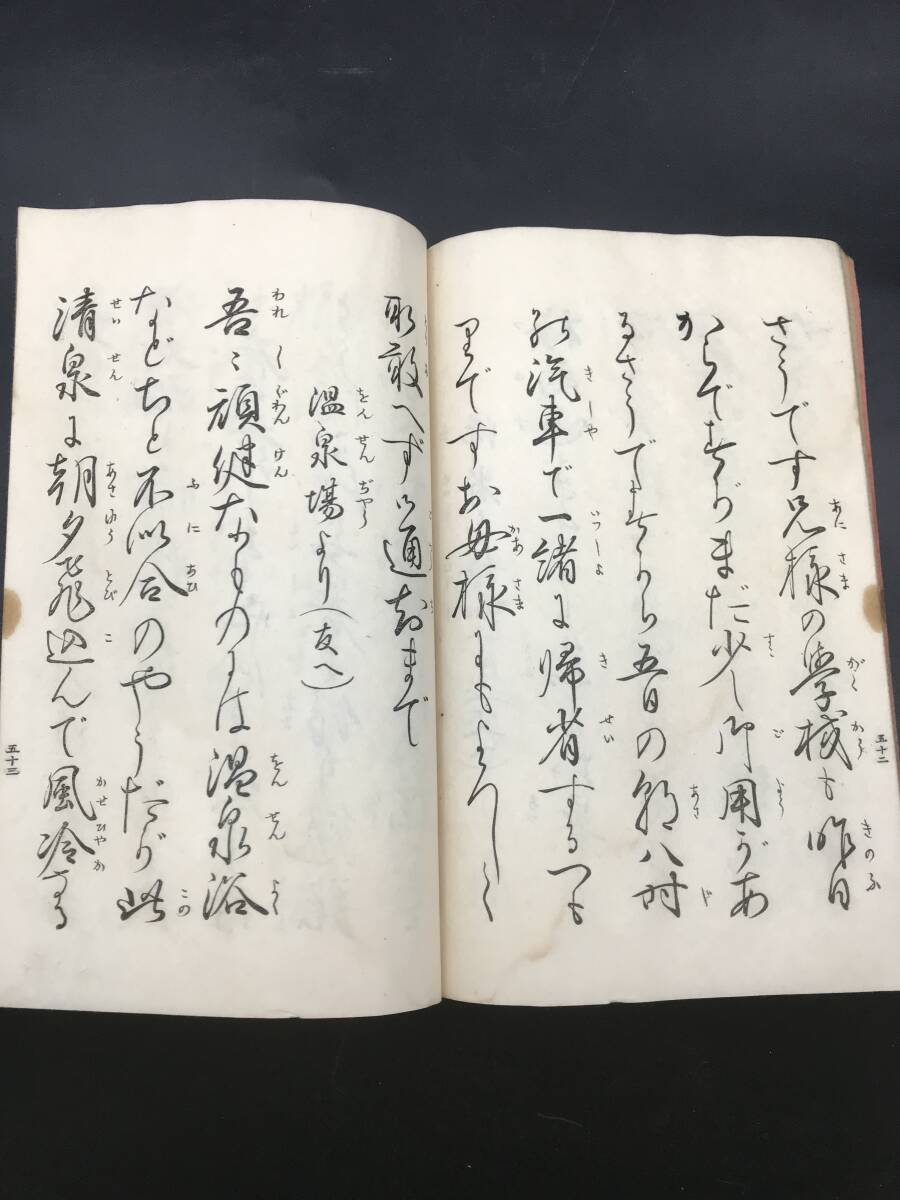 さうです兄様の學校も昨日
からですがまだ少し御用があ
るさうですから五日の朝八時
の汽車で一緒に帰省するつも
りですお母様にもよろしく
取敢へず御通知まで
温泉場より(友へ)
吾々頑健なものには温泉浴
などちと不似合のやうだが此
清泉に朝夕飛込んで風冷かなる
五十二
五十三